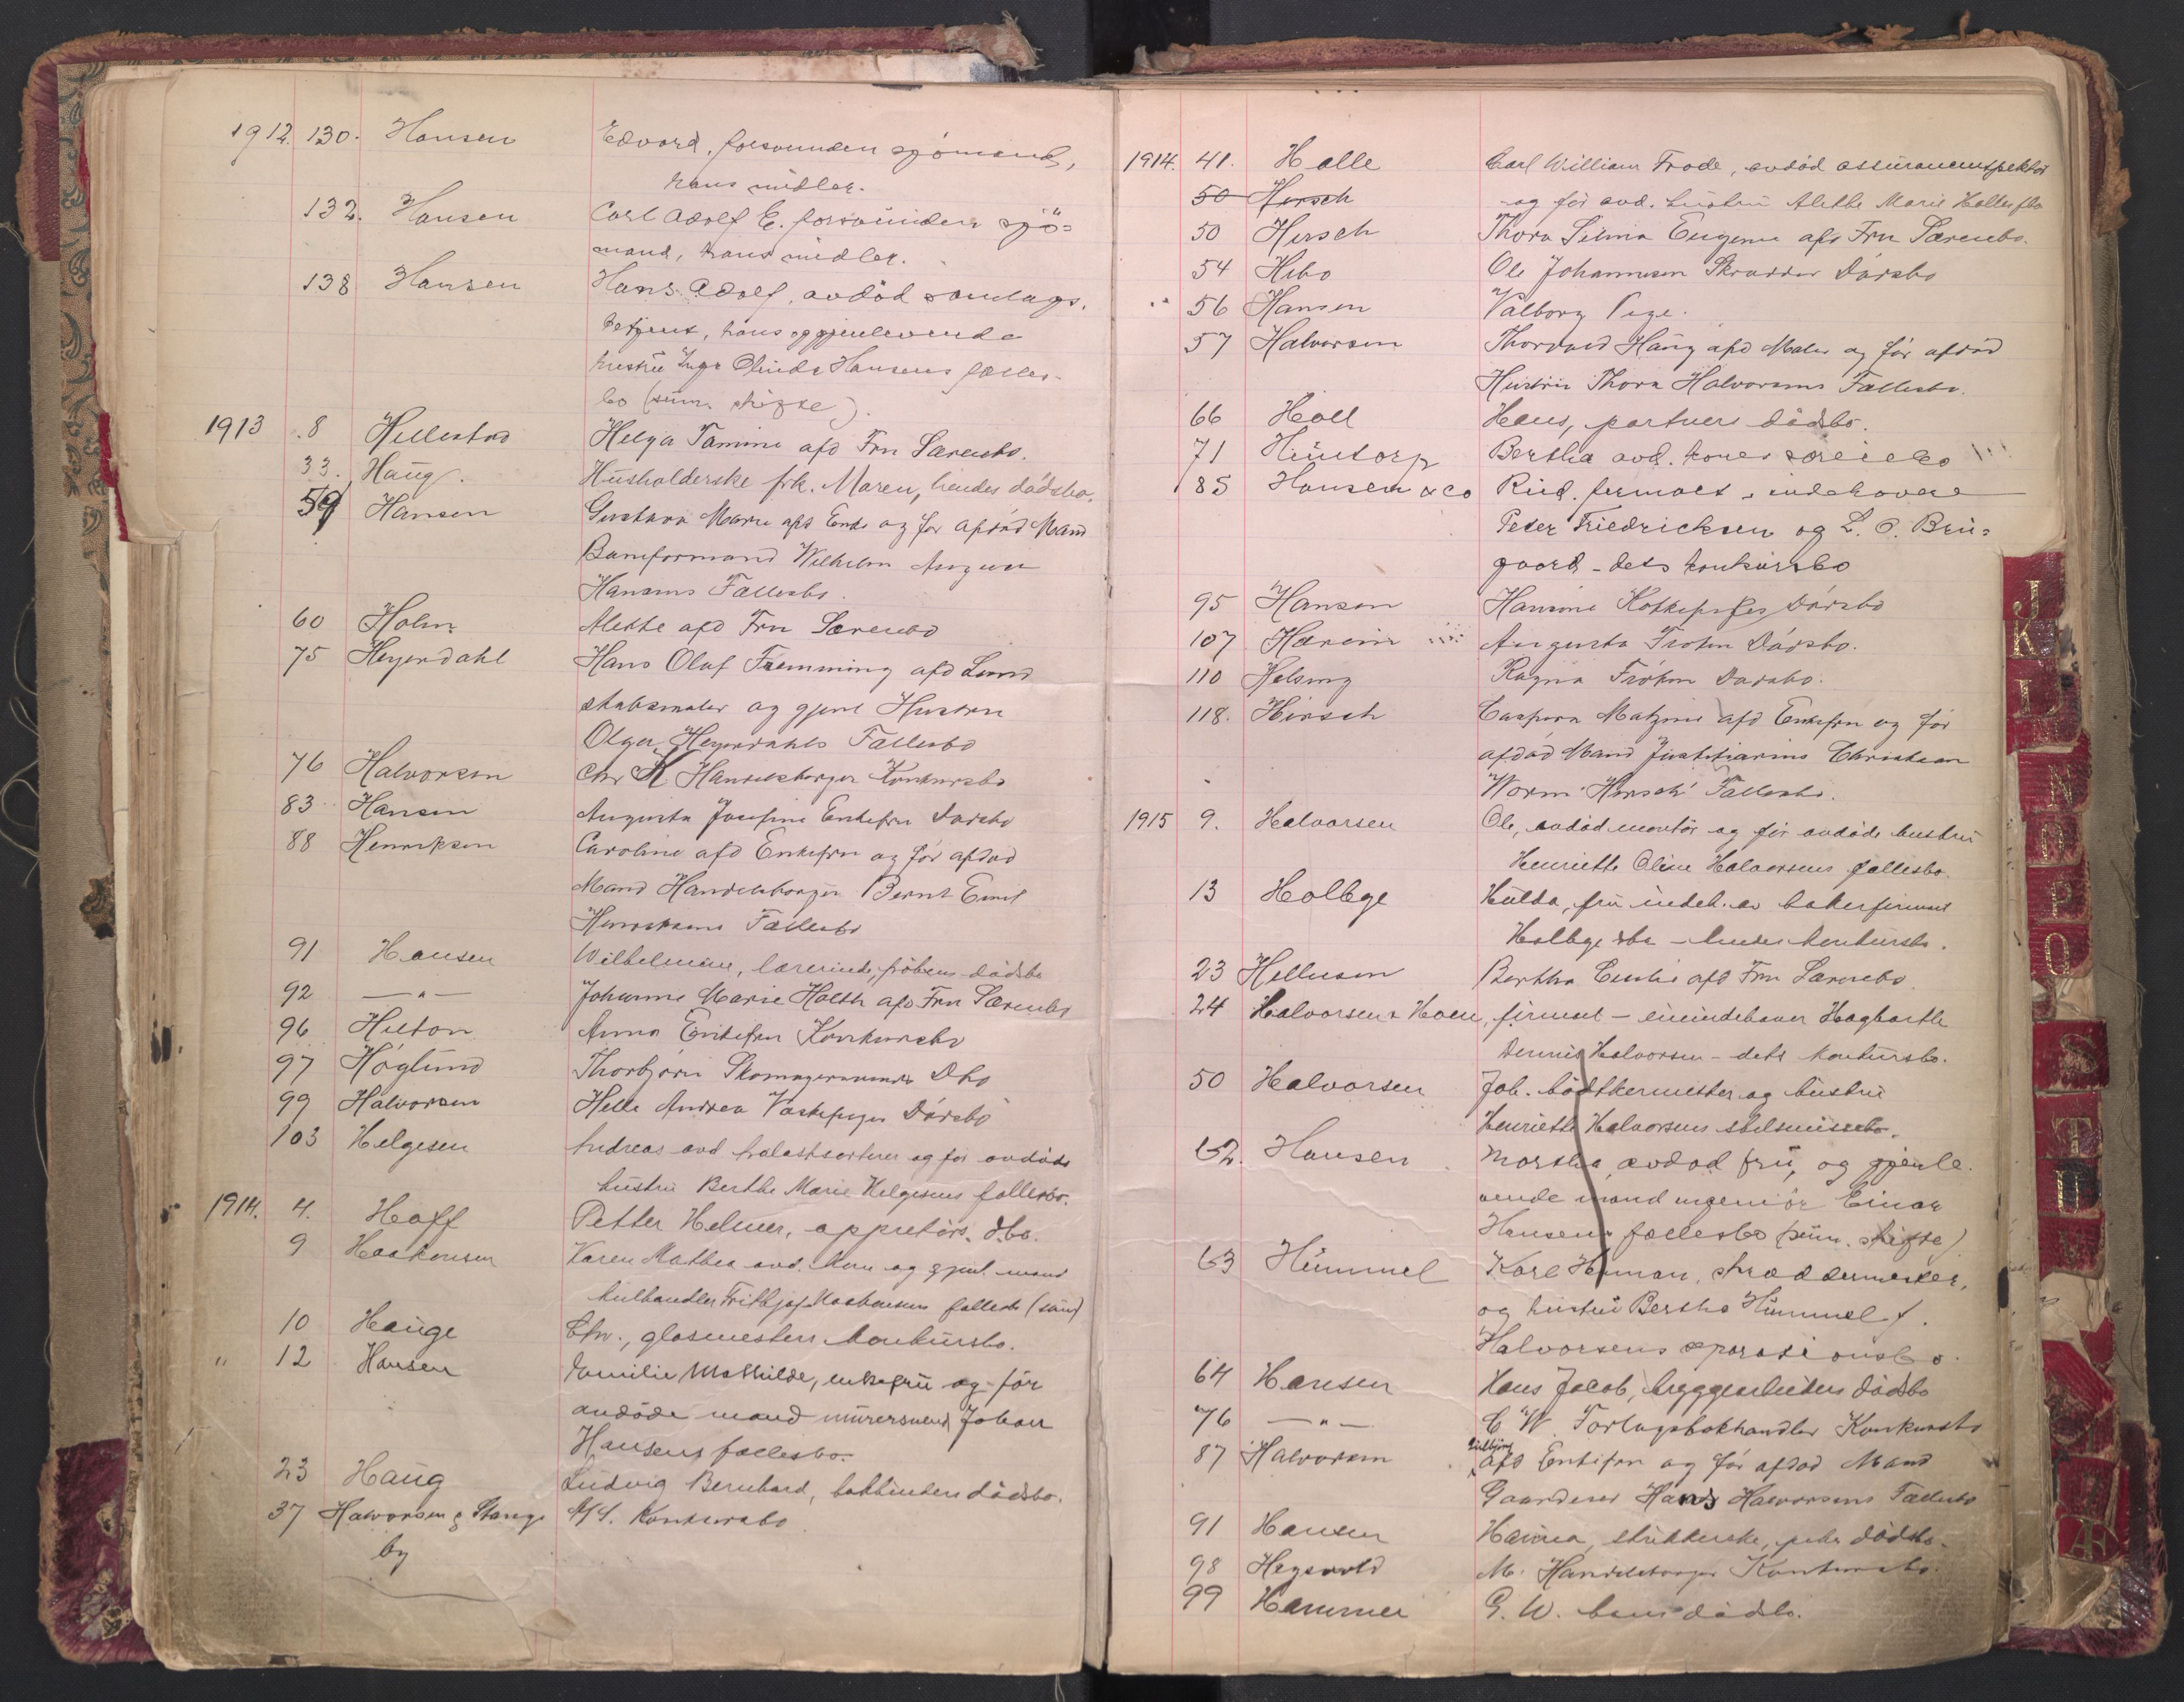 1912. 130. Hansen Edvard, forsvunden sjömand,
hans midler.
132. Hansen Carl Adolf E. forsvunden sjö=
mand, hans midler.
138 Hansen Hans Adolf, avdöd
betjent, hans og gjenlevende
hustru Inga Hansens fælles-
bo (sum. skifte).
1913 8 Hellestad Helga Tamine afd Fru Særenbo.
33. Haug. Husholderske frk. Maren, hendes dödsbo.
59 Hansen Gustava Marie afd Enke og før afdød Mand
Baneformand Wilhelm August
Hansens Fællesbo.
60 Holm Alette afd Fru Særenbo
75 Heyerdahl Hans Olaf Flemming afd Land
skabsmaler og gjenl Hustru
Olga Heyerdahls Fællesbo
76 Halvorsen Chr H Handelsborger Konkursbo
83 Hansen Augusta Josefine Enkefru Dødsbo
88 Henriksen Caroline afd Enkefru og før afdød
Mand Handelsborger Bernt Emil
Henriksens Fællesbo
91 Hansen Wilhelmine, lærerinde, frökens dödsbo
92 — " — Johanne Marie Holth afd Fru Særenbo
96 Hilton Anna Enkefru Konkursbo
97 Höglund Thorbjørn Skomagersvend Dbo
99 Halvorsen Helle Andrea Vaskepiges Dødsbo
103 Helgesen Andreas avd og för avdöde
hustru Berthe Marie Helgesens fællesbo.
1914. 4. Hoff Petter Helmer, appretörs dbo.
9 Haakonsen Karen Mathea avd. kone og gjenl. mand
kulhandler Frithjof Haakonsens fællesbo (sum)
10 Hauge Chr., glasmesters konkursbo.
" 12 Hansen Emilie Mathilde, enkefru og för
avdöde mand murersvend Johan
Hansens fællesbo.
23 Haug Ludvig Bernhard, bokbinders dödsbo.
37 Halvorsen & Stange A/S. Konkursbo
by
1914. 41. Halle Carl William Frode, avdöd assuranceinspektör
50 Hirsch og för avd. hustru Alethe Marie Halles fbo
50 Hirsch Thora Selma Eugenie afd Fru Særenbo.
54 Hibo Ole Johannesen Skrædder Dødsbo
" 56 Hansen Valborg Pige.
57 Halvorsen Thorvald Haug afd Maler og før afdød
Hustru Thora Halvorsens Fællesbo.
66 Holl Hans, portners dödsbo.
71 Huntorp Bertha avd. kones særeiebo
85 Hansen & Co Rud. firmaet, indehavere
Peter Friedricksen og L. O. Bru=
gaard - dets konkursbo
95 Hansen Hansine Kokkepiges Dødsbo
107 Augusta Frøken Dødsbo.
110 Helsing Ragna Frøken Dødsbo.
118. Hirsch Caspara Matzine afd Enkefru og før
afdød Mand Justitiarius Christian
Worm Hirsch Fællesbo.
1915 9. Halvorsen Ole, avdöd montör og för avdöde hustru
Henriette Oline Halvorsens fællesbo.
13 Holbye Hulda, fru indeh. av bakerfirmaet
Holbye - hendes konkursbo.
23 Hellesen Bertha Emilie afd Fru Særenbo.
24 Halvorsen & Hoen, firmaet - eneindehaver Hagbarth
Dennis Halvorsen - dets konkursbo.
50 Halvorsen Joh. bödtkermester og hustru
Henriette Halvorsens skilsmissebo.
52. Hansen Martha, avdöd fru, og gjenle-
vende mand ingeniör Einar
Hansens fællesbo (sum. skifte)
63 Hümmel Karl Herman, skræddermester,
og hustru Bertha Hümmel f.
Halvorsens separationsbo.
64 Hansen Hans Jacob, bryggearbeiders dödsbo
76 — " — C W Forlagsbokhandler Konkursbo
87 Halvorsen afd Enkefru og før afdød Mand
Gaardeier Hans Halvorsens Fællesbo
91 Hansen Hanna, strikkerske, dödsbo.
98 Hegsvold M. Handelsborger Konkursbo.
99 Hammer G. W. dödsbo.
J
K
L
M
N
O
P
S
T
U
V
Æ